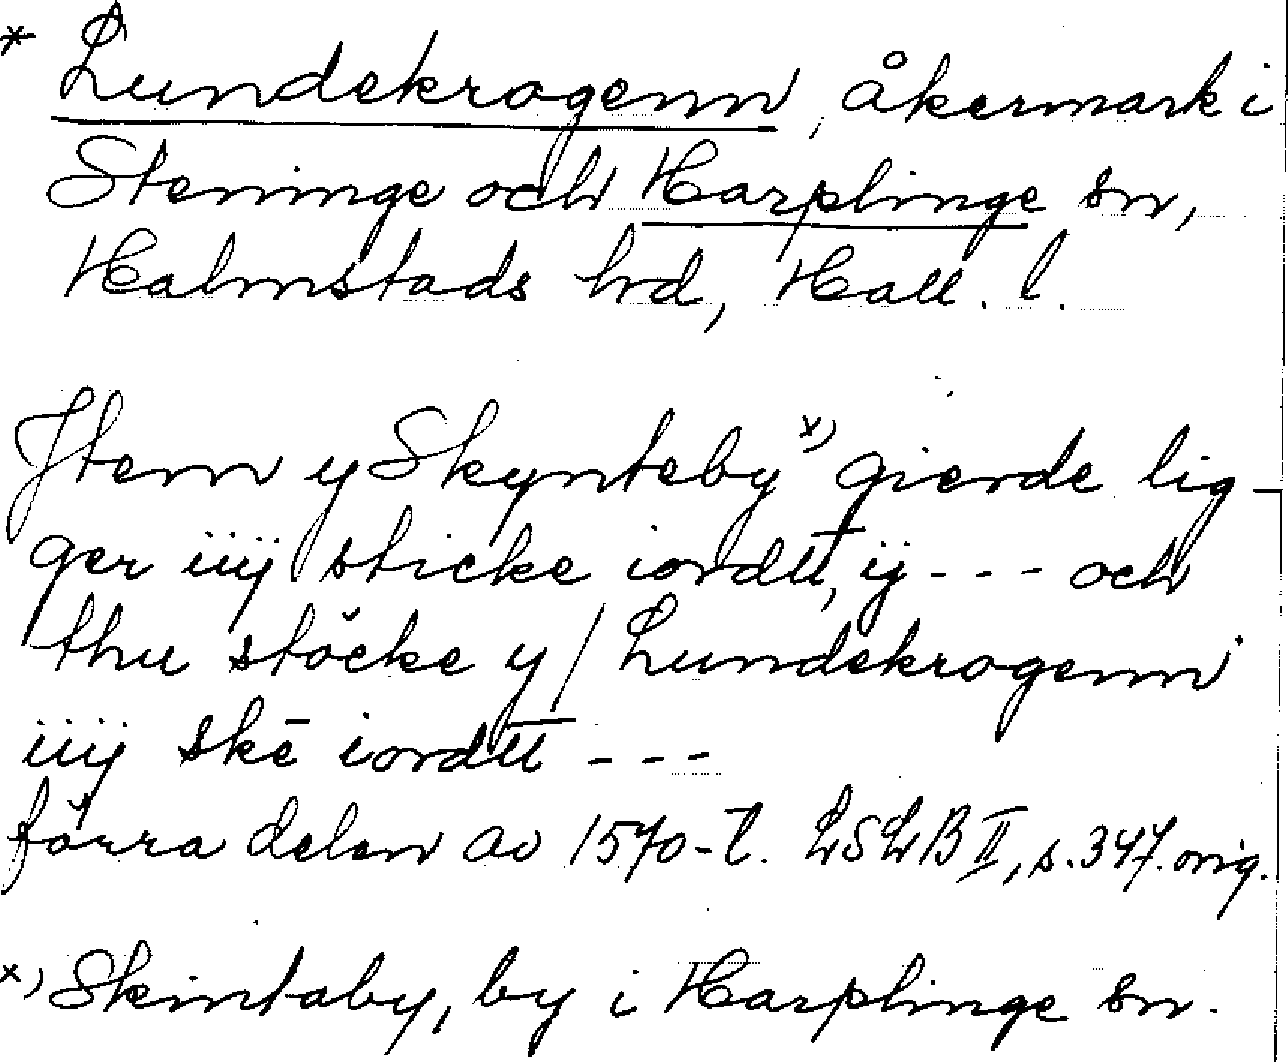 * Lundekrogenn, åkermark i
Steninge och Harplinge sn,
Halmstads hd, Hall. l.
Jtem y Skynteby x) gierde lig-
ger iiij sticke iordtt, ij - - - och
thu stöcke y / Lundekrogenn
iiij skē iordtt - - -
förra delen av 1570-t. LSLB II, s. 347. orig.
x) Skintaby, by i Harplinge sn.